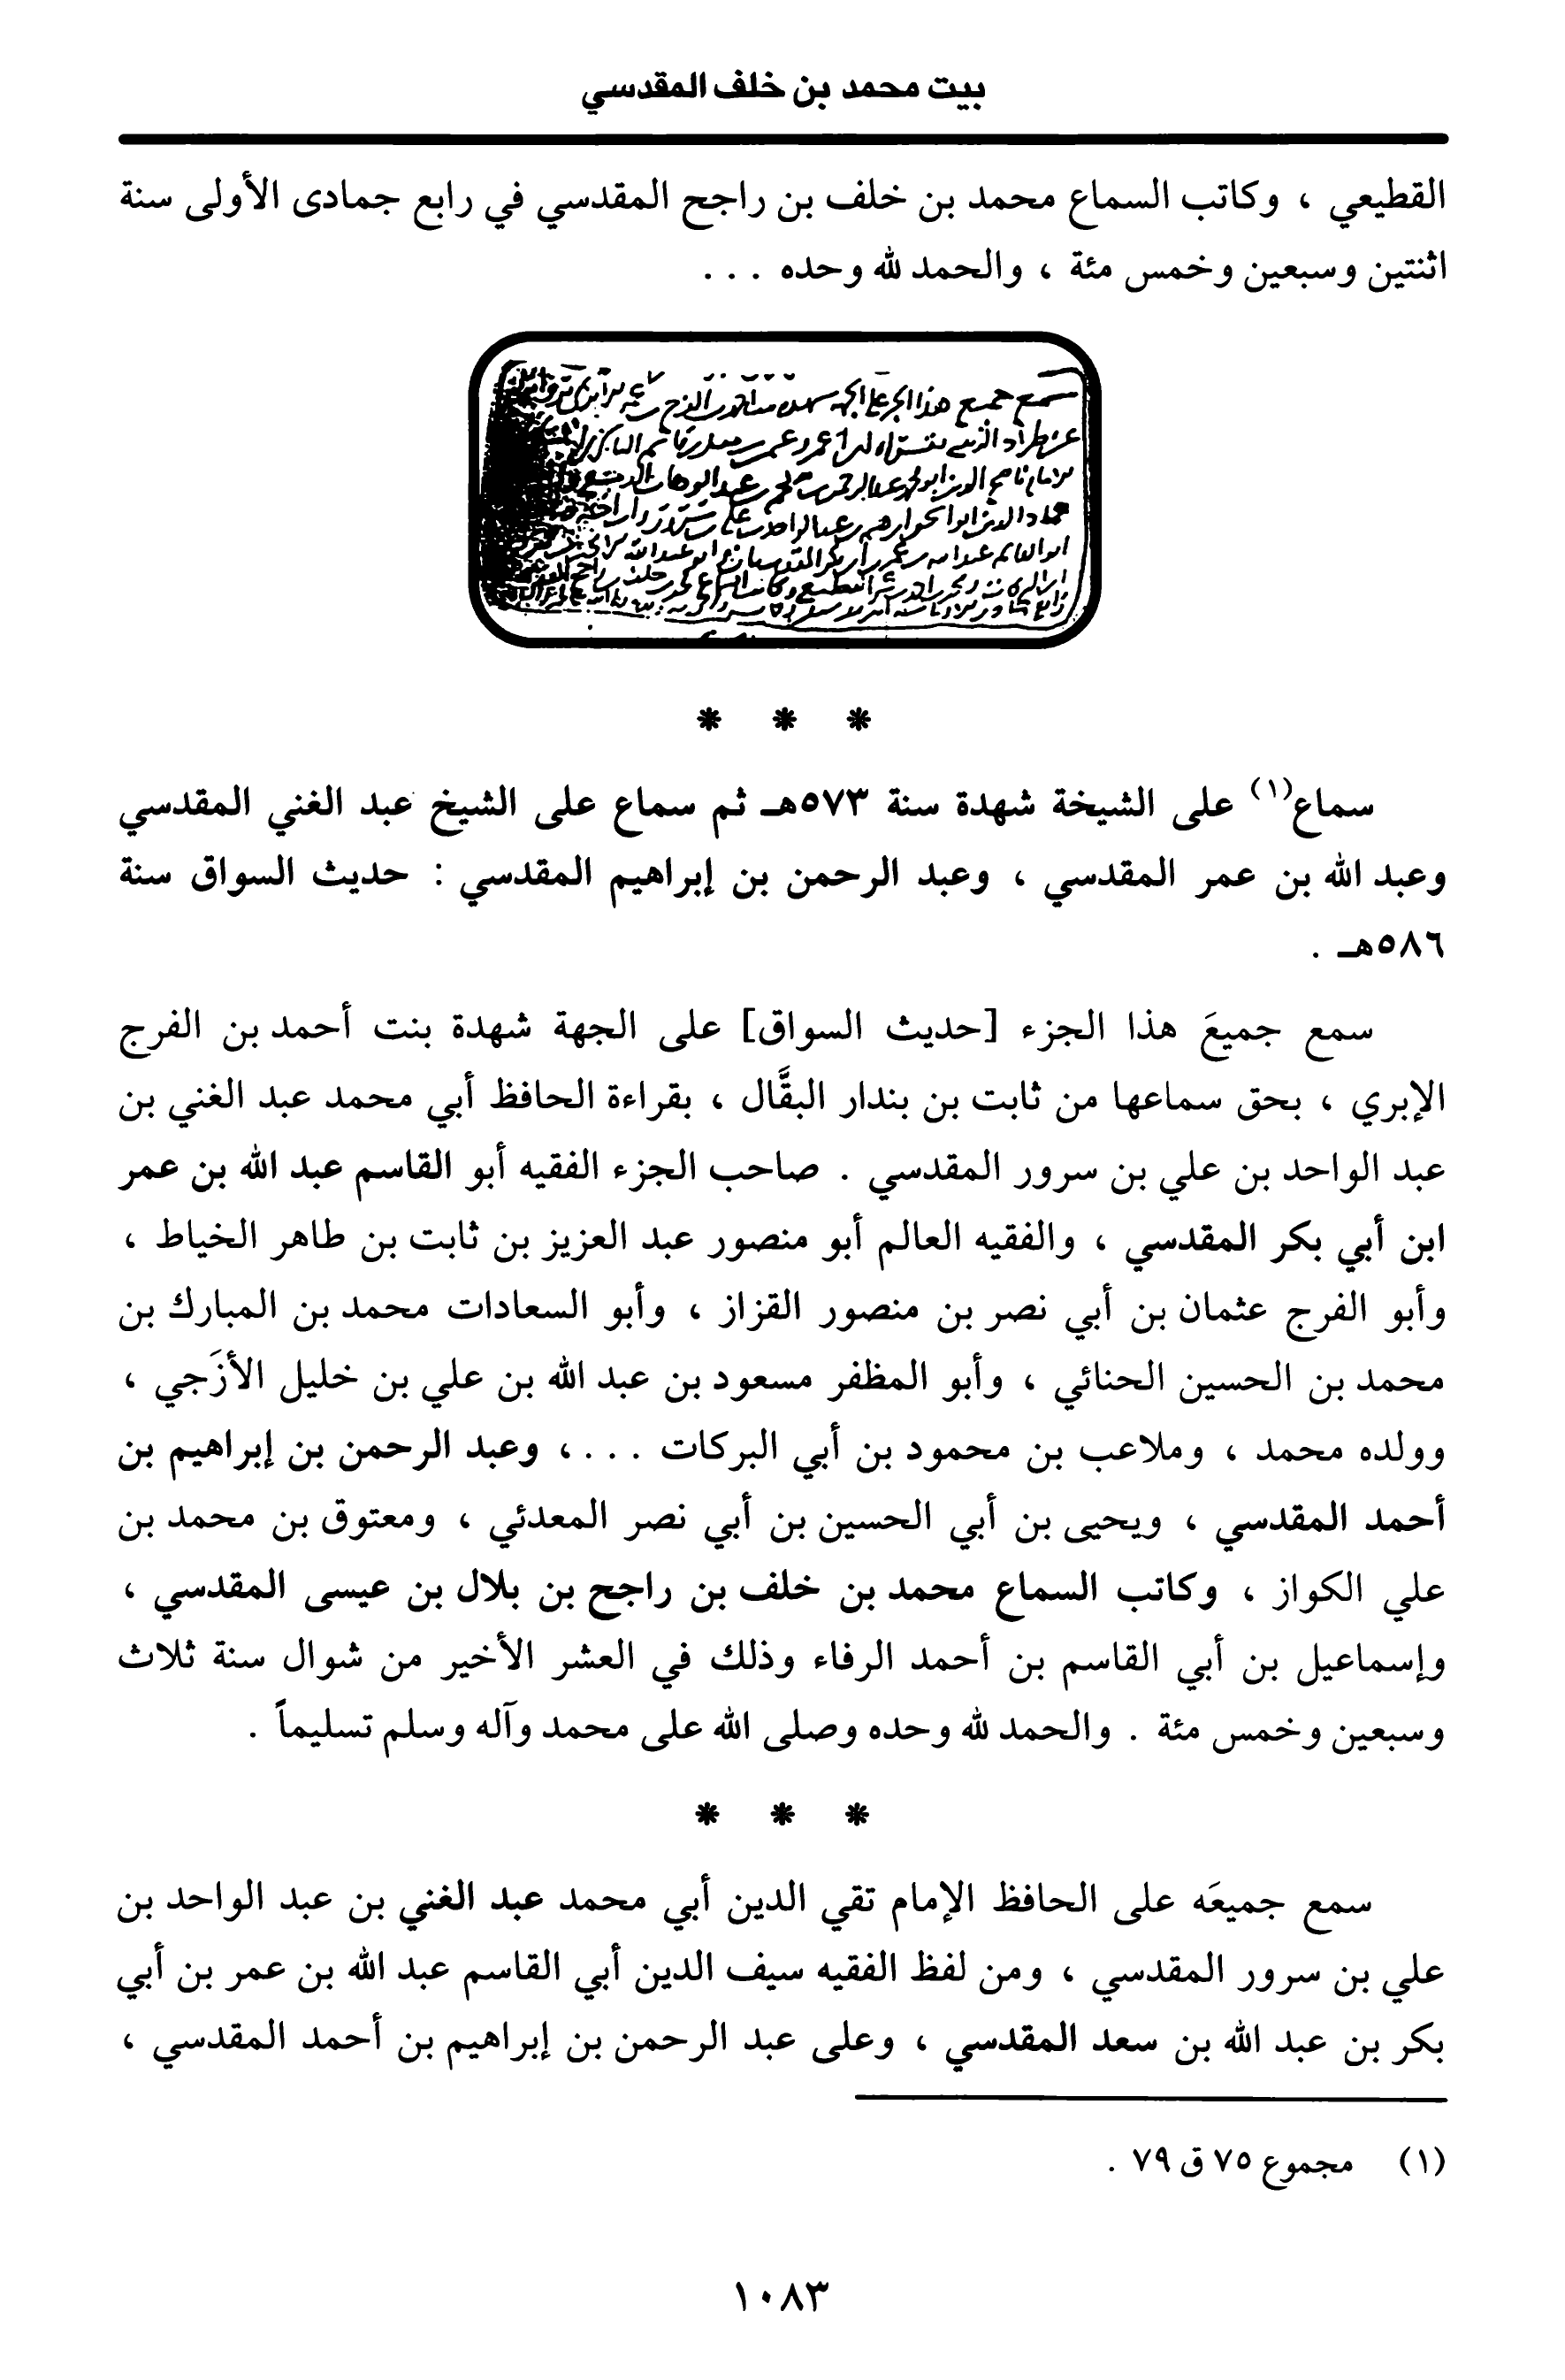 بيت محمد بن خلف المقدسي
القطيعي ، وكاتب السماع محمد بن خلف بن راجح المقدسي في رابع جمادى الأولى سنة
اثنتين وسبعين وخمس مئة ، والحمد لله وحده . . .
سمع جميع هذا الجزء على الجهة
* * *
سماع(١) على الشيخة شهدة سنة ٥٧٣هـ ثم سماع على الشيخ عبد الغني المقدسي
وعبد الله بن عمر المقدسي ، وعبد الرحمن بن إبراهيم المقدسي : حديث السواق سنة
٥٨٦هـ .
سمع جميعَ هذا الجزء [حديث السواق] على الجهة شهدة بنت أحمد بن الفرج
الإبري ، بحق سماعها من ثابت بن بندار البقَّال ، بقراءة الحافظ أبي محمد عبد الغني بن
عبد الواحد بن علي بن سرور المقدسي . صاحب الجزء الفقيه أبو القاسم عبد الله بن عمر
ابن أبي بكر المقدسي ، والفقيه العالم أبو منصور عبد العزيز بن ثابت بن طاهر الخياط ،
وأبو الفرج عثمان بن أبي نصر بن منصور القزاز ، وأبو السعادات محمد بن المبارك بن
محمد بن الحسين الحنائي ، وأبو المظفر مسعود بن عبد الله بن علي بن خليل الأزَجي ،
وولده محمد ، وملاعب بن محمود بن أبي البركات . . . ، وعبد الرحمن بن إبراهيم بن
أحمد المقدسي ، ويحيى بن أبي الحسين بن أبي نصر المعدئي ، ومعتوق بن محمد بن
علي الكواز ، وكاتب السماع محمد بن خلف بن راجح بن بلال بن عيسى المقدسي ،
وإسماعيل بن أبي القاسم بن أحمد الرفاء وذلك في العشر الأخير من شوال سنة ثلاث
وسبعين وخمس مئة . والحمد لله وحده وصلى الله على محمد وآله وسلم تسليماً .
* * *
سمع جميعَه على الحافظ الإمام تقي الدين أبي محمد عبد الغني بن عبد الواحد بن
علي بن سرور المقدسي ، ومن لفظ الفقيه سيف الدين أبي القاسم عبد الله بن عمر بن أبي
بكر بن عبد الله بن سعد المقدسي ، وعلى عبد الرحمن بن إبراهيم بن أحمد المقدسي ،
(١) مجموع ٧٥ ق ٧٩ .
١٠٨٣